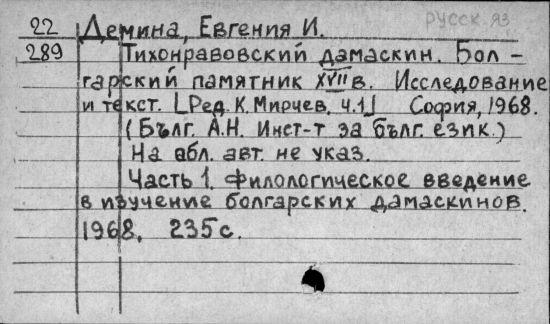 русск. яз
22 Демина, Евгения И.
289 Тихонравовский дамаскин. Бол-
гарский памятник XVII в. Исследование
и текст. [Ред. К. Мирчев. ч.1] София, 1968.
(Бълг. А.Н. Инст-т за бълг. език.)
На обл. авт. не указ.
Часть 1. Филологическое введение
в изучение болгарских дамаскинов.
1968. 235 с.